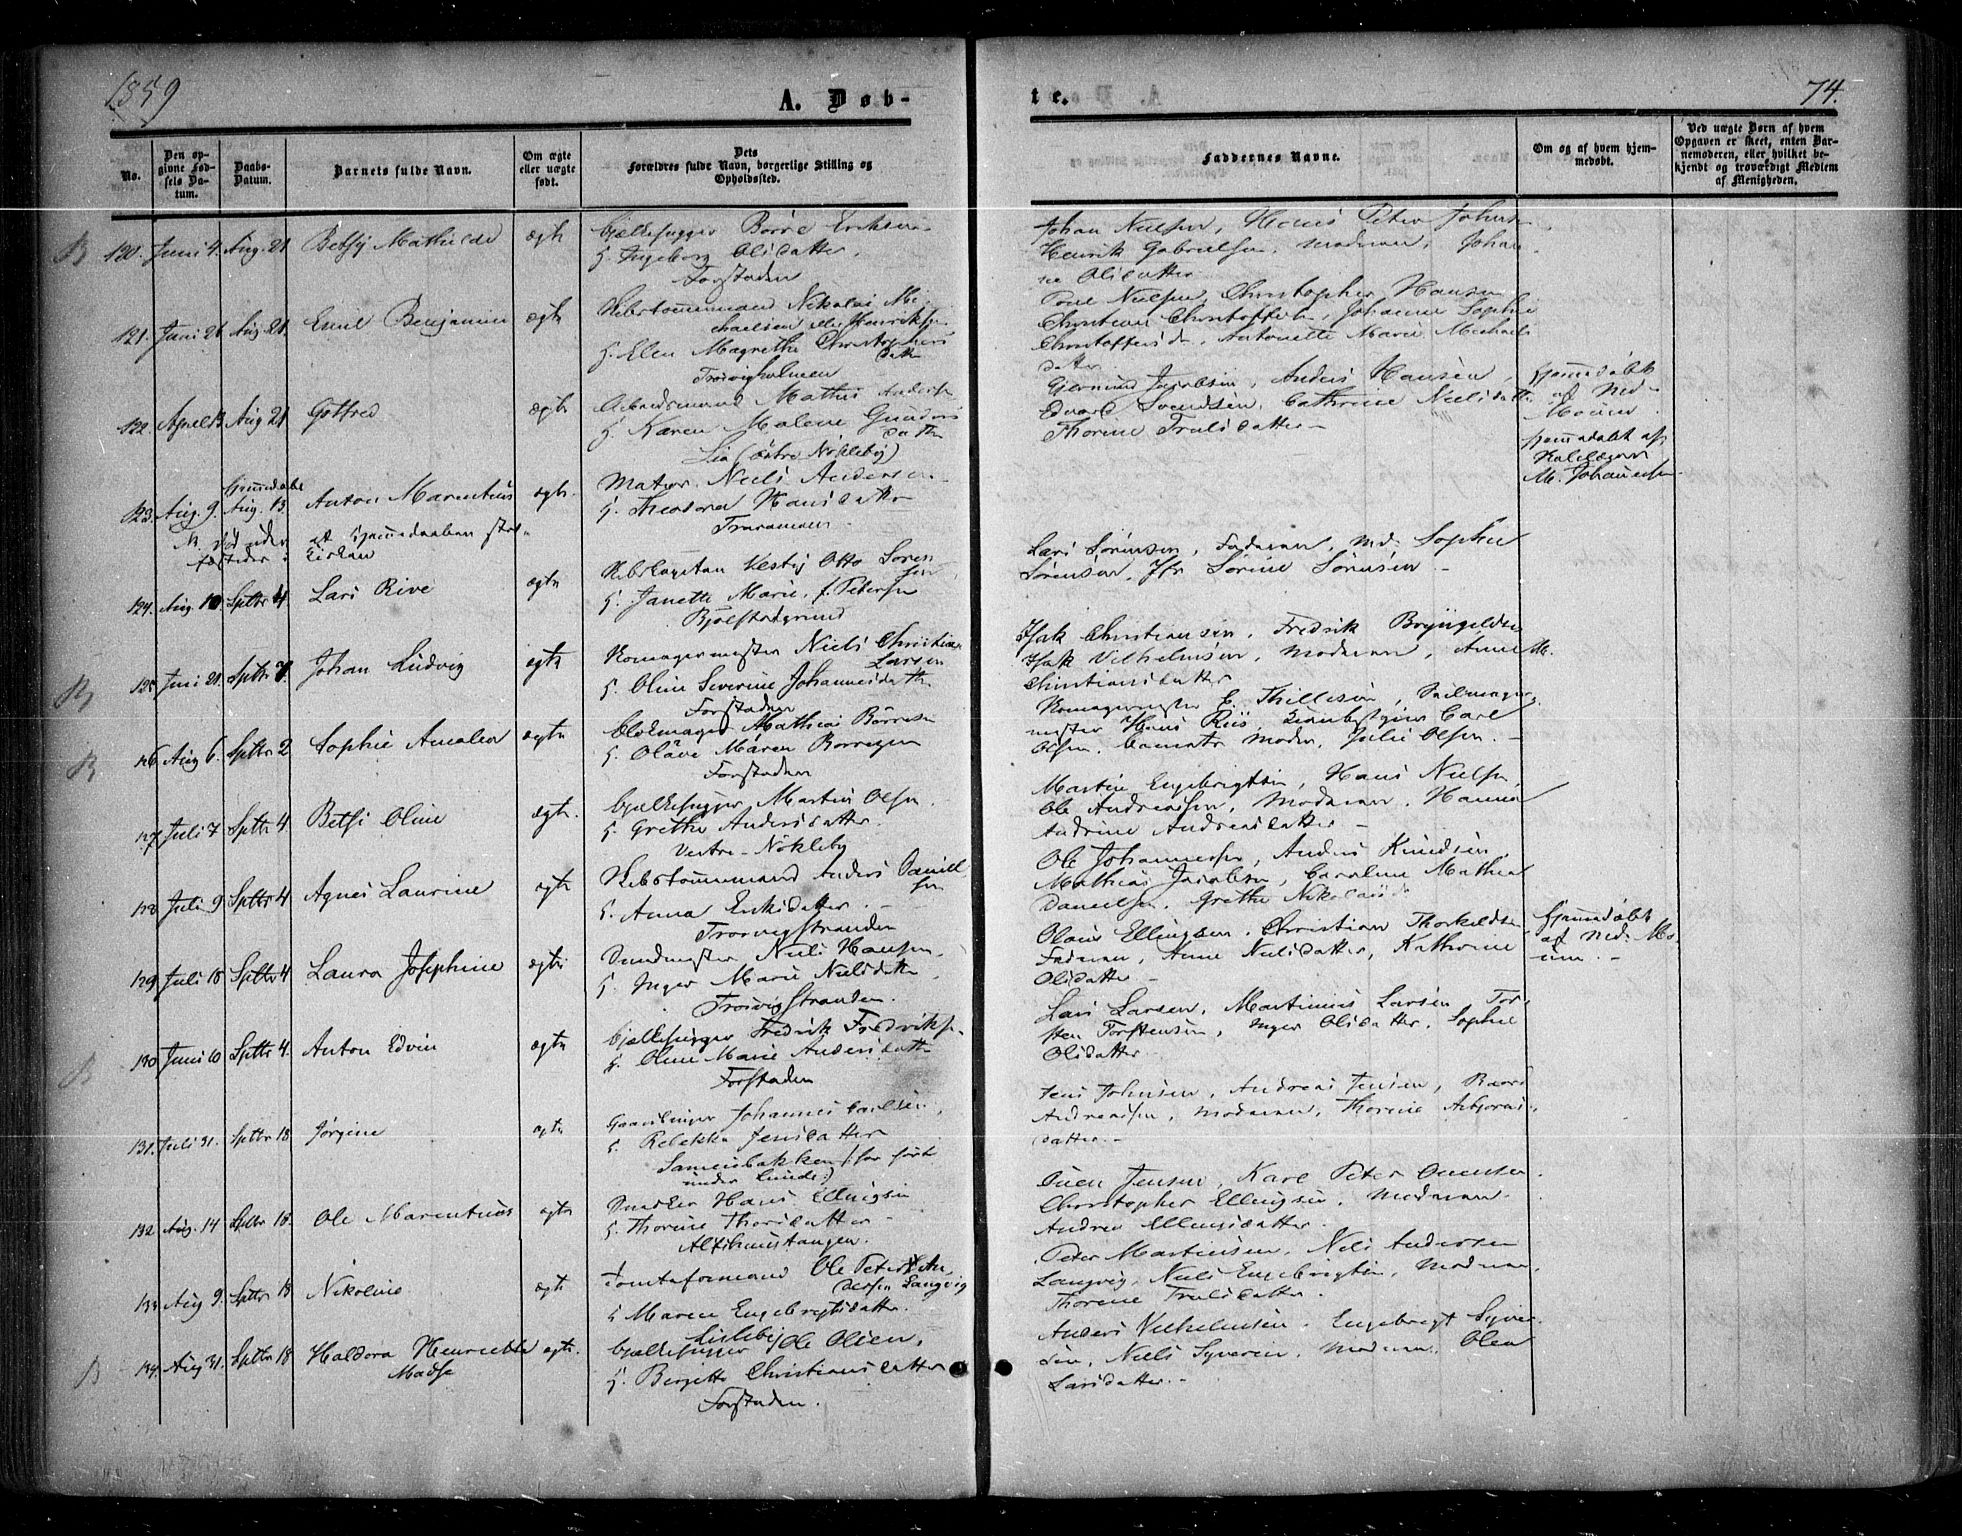 1859
A. Døb-
te.
74.
No.
Den op-
givne Fød-
sels Da-
tum.
Daabs-
Datum.
Barnets fulde Navn.
Om ægte
eller uægte
født.
Dets
Forældres fulde Navn, borgerlige Stilling og
Opholdssted.
Faddernes Navne.
Om og af hvem hjem-
medøbt.
Ved uægte Børn af hvem
Opgaven er skeet, enten Bar-
nemoderen, eller hvilket be-
kjendt og troværdigt Medlem
af Menigheden.
B 120. Juni 4. Aug. 21 Betsy Mathilde ægte Bjælkehugger Børre Eriksen
H. Ingeborg Olsdatter.
Forstaden
Johan Nielsen, Hans Peter Johns
Henrik Gabrielsen, Moderen, Johan
ne Olsdatter
121. Juni 26 Aug. 21 Emil Benjamin ægte Skibstømmermand Nikolai Mi-
chaelsen eller Henriksen
H. Elen Magrethe Christophers
datter
Trosvigholmen
Poul Nielsen, Christopher Hansen
Christian Christoffersen, Johanne Sophie
Christoffersd., Antonette Marie Michaels
datter
122. April 13 Aug 21 Gotfred ægte Arbeidsmand Mathis Andersen
H. Karen Malene Gunders
datter
Lia (østre Nøkleby)
Gjermund Jacobsen, Anders Hansen,
Edvard Svendsen, Cathrine Nielsdatter
Thorine Trulsdatter -
Hjemmedøbt
af Md.
Moum
123. Aug. 9. Hjemmedøbt
Aug. 13. Anton Marentius ægte. Matros Niels Andersen
H. Theodora Hansdatter
Hjemmedøbt af
M. Johannesen
124. Aug. 10 Septbr 4 Lars Rive ægte Skibscapitan Otto Soren
sen
H. Janette Marie, f. Petersen
Lars Sørensen, Faderen, Md. Sophie
Sørensen, Jfr Sorine Sørensen -
125 Juni 21. Septbr Johan Ludvig ægte Skomagermester Niels Christian
Larsen
H. Oline Severine Johannesdatter
Forstaden
Isak Christiansen, Fredrik Bryngeldsen
Isak Vilhelmsen, Moderen, Anne M.
Christiansdatter
B 126 Aug 6. Septbr 2 Sophie Amalia ægte Blokmager Mathias Børresen
H. Olave Maren Borresen
Forstaden
Skomagermester E. Thillesen, Seilmager
mester Hans Riis, Carl
Olsen, Moder, Julie Olsen. -
127 Juli 7 Septbr 4 Betsi Oline ægte. Bjælkehugger Martin Olsen.
H. Grethe Andersdatter.
Vestre-Nøkleby
Martin Engebrigtsen, Hans Nielsen,
Ole Andreassen, Moderen, Hanna
Andrine Andreasdatter -
128 Juli 9 Septbr 4 Agnes Laurine ægte Skibstømmermand Anders Daniel
sen
H. Anna Eriksdatter. -
Trosvigstranden
Ole Johannesen, Anders Knudsen,
Mathias Jacobsen, Caroline Mathea
Danielsen, Grethe Nikolaisd.
129 Juli 18 Septbr 4 Laura Josephine ægte Niels Hansen
H. Inger Marie Nielsdatter
Trosvigstranden.
Olaus Ellingsen, Christian Thorkeldsen
Faderen, Anne Nielsdatter, Kathrine
Olsdatter -
Hjemmedøbt
af Md. Mo-
um. -
130 Juni 10 Septbr 4. Anton Edvin ægte Bjælkehugger Fredrik Fredriksen
H. Oline Marie Andersdatter
Forstaden
Lars Larsen, Martinius Larsen, Tor-
sten Torstensen, Inger Olsdatter, Sophie
Olsdatter
131. Juli 31. Septbr 18. Jørgine ægte Johannes Carlsen,
H. Rebekka Jensdatter
Sameisbakken (før født
under Lunde)
Jens Johnsen, Andreas Jensen, Baard
Andreassen, Moderen, Thorine Asbjørns-
datter. -
132 Aug. 14 Septbr 18. Ole Marentius ægte Snedker Hans Ellingsen
H. Thorine Thorsdatter
Ouen Jensen, Karl Peter Ouensen.
Christopher Ellingsen, Moderen.
Andrea Ellingsdatter.
133 Aug 9. Septbr 18 Nikoline ægte Tomteformand Ole Peter An,
dersen Langvig
H Maren Engebregtsdatter.
Lisleby
Peter Martinsen, Nils Andersen
Langvig, Niels Engebrigtsen, Moderen,
Thorine Trulsdatter.
B 134. Aug 31. Septbr 18 Haldora Henriette
ægte. Bjælkehugger Ole Olsen,
H. Bergette Christiansdatter
Forstaden.
Anders Vilhelmsen, Engebrigt Syver-
sen, Niels Syversen, Moderen, Olea
Larsdatter. -